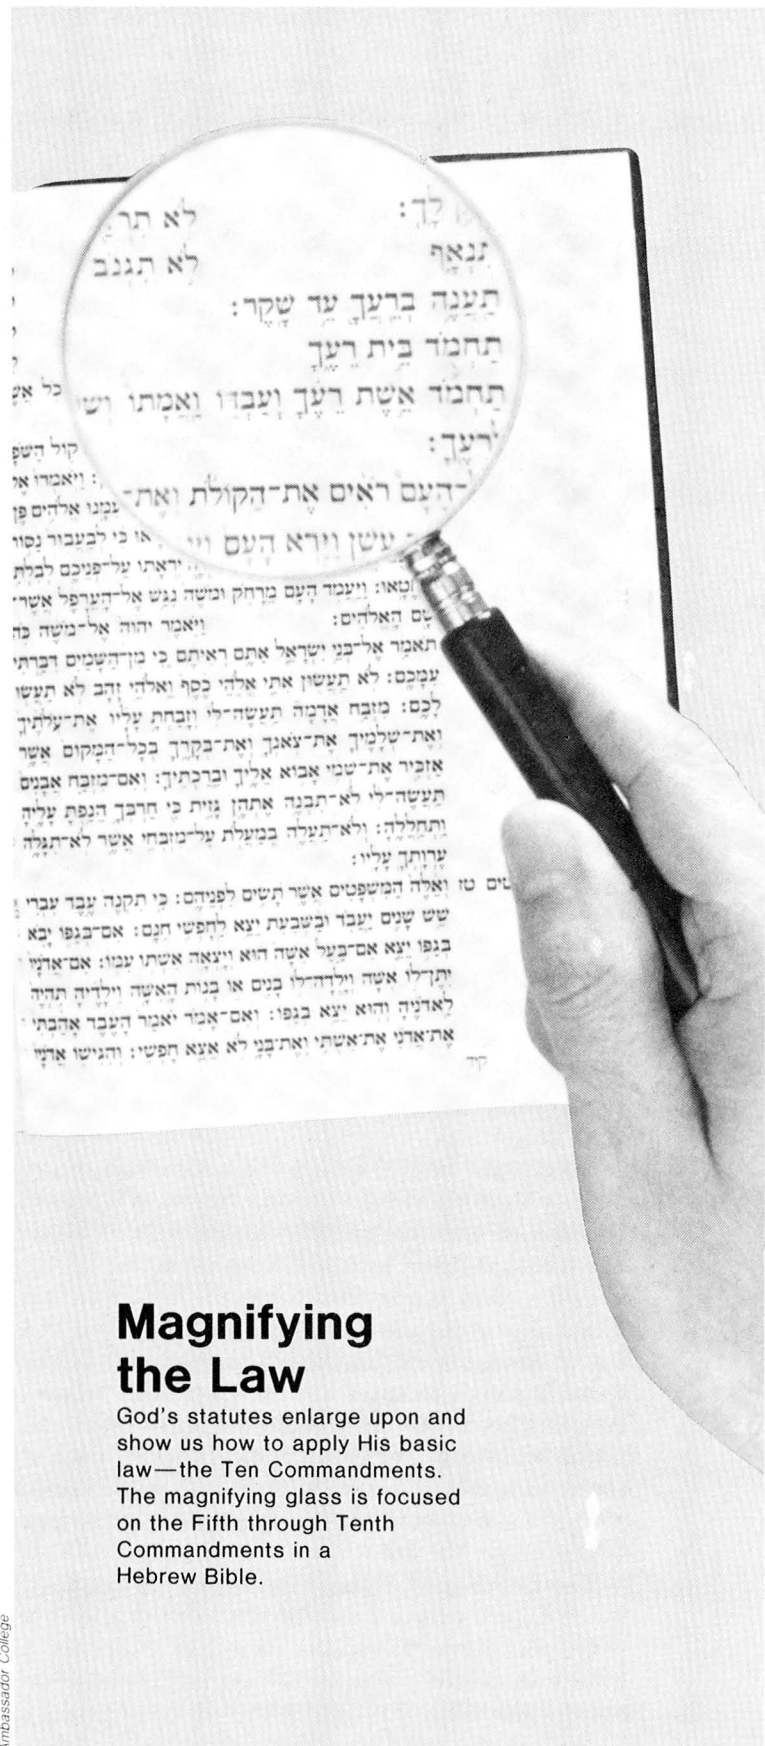 לָךְ: לֹא
תִּנְאָף לֹא תִּגְנֹב
תַעֲנֶה בְרֵעֲךָ עֵד שָׁקֶר:
תַחְמֹד בֵּית רֵעֶךָ
תַחְמֹד אֵשֶׁת רֵעֶךָ וְעַבְדּוֹ וַאֲמָתוֹ כָל
לְרֵעֶךָ:
הָעָם רֹאִים אֶת־הַקּוֹלֹת וְאֶת־ קוֹל
עָשֵׁן וַיַּרְא הָעָם וַיֹּאמְרוּ
עִמָּנוּ אֱלֹהִים פֶּן
כִּי לְבַעֲבוּר נַסּוֹת
יִרְאָתוֹ עַל־פְּנֵיכֶם לְבִלְתִּי
תֶחֱטָאוּ: וַיַּעֲמֹד הָעָם מֵרָחֹק וּמֹשֶׁה נִגַּשׁ אֶל־הָעֲרָפֶל אֲשֶׁר־
שָׁם הָאֱלֹהִים: וַיֹּאמֶר יְהוָה אֶל־מֹשֶׁה כֹּה
תֹאמַר אֶל־בְּנֵי יִשְׂרָאֵל אַתֶּם רְאִיתֶם כִּי מִן־הַשָּׁמַיִם דִּבַּרְתִּי
עִמָּכֶם: לֹא תַעֲשׂוּן אִתִּי אֱלֹהֵי כֶסֶף וֵאלֹהֵי זָהָב לֹא תַעֲשׂוּ
לָכֶם: מִזְבַּח אֲדָמָה תַּעֲשֶׂה־לִּי וְזָבַחְתָּ עָלָיו אֶת־עֹלֹתֶיךָ
וְאֶת־שְׁלָמֶיךָ אֶת־צֹאנְךָ וְאֶת־בְּקָרֶךָ בְּכָל־הַמָּקוֹם אֲשֶׁר
אַזְכִּיר אֶת־שְׁמִי אָבוֹא אֵלֶיךָ וּבֵרַכְתִּיךָ: וְאִם־מִזְבַּח אֲבָנִים
תַּעֲשֶׂה־לִּי לֹא־תִבְנֶה אֶתְהֶן גָּזִית כִּי חַרְבְּךָ הֵנַפְתָּ עָלֶיהָ
וַתְּחַלְלֶהָ: וְלֹא־תַעֲלֶה בְמַעֲלֹת עַל־מִזְבְּחִי אֲשֶׁר לֹא־תִגָּלֶה
עֶרְוָתְךָ עָלָיו:
טז וְאֵלֶּה הַמִּשְׁפָּטִים אֲשֶׁר תָּשִׂים לִפְנֵיהֶם: כִּי תִקְנֶה עֶבֶד עִבְרִי
שֵׁשׁ שָׁנִים יַעֲבֹד וּבַשְּׁבִעִת יֵצֵא לַחָפְשִׁי חִנָּם: אִם־בְּגַפּוֹ יָבֹא
בְּגַפּוֹ יֵצֵא אִם־בַּעַל אִשָּׁה הוּא וְיָצְאָה אִשְׁתּוֹ עִמּוֹ: אִם־אֲדֹנָיו
יִתֶּן־לוֹ אִשָּׁה וְיָלְדָה־לוֹ בָנִים אוֹ בָנוֹת הָאִשָּׁה וִילָדֶיהָ תִּהְיֶה
לַאדֹנֶיהָ וְהוּא יֵצֵא בְגַפּוֹ: וְאִם־אָמֹר יֹאמַר הָעֶבֶד אָהַבְתִּי
אֶת־אֲדֹנִי אֶת־אִשְׁתִּי וְאֶת־בָּנָי לֹא אֵצֵא חָפְשִׁי: וְהִגִּישׁוֹ אֲדֹנָיו
קיד
Magnifying
the Law
God's statutes enlarge upon and
show us how to apply His basic
law—the Ten Commandments.
The magnifying glass is focused
on the Fifth through Tenth
Commandments in a
Hebrew Bible.
Ambassador College